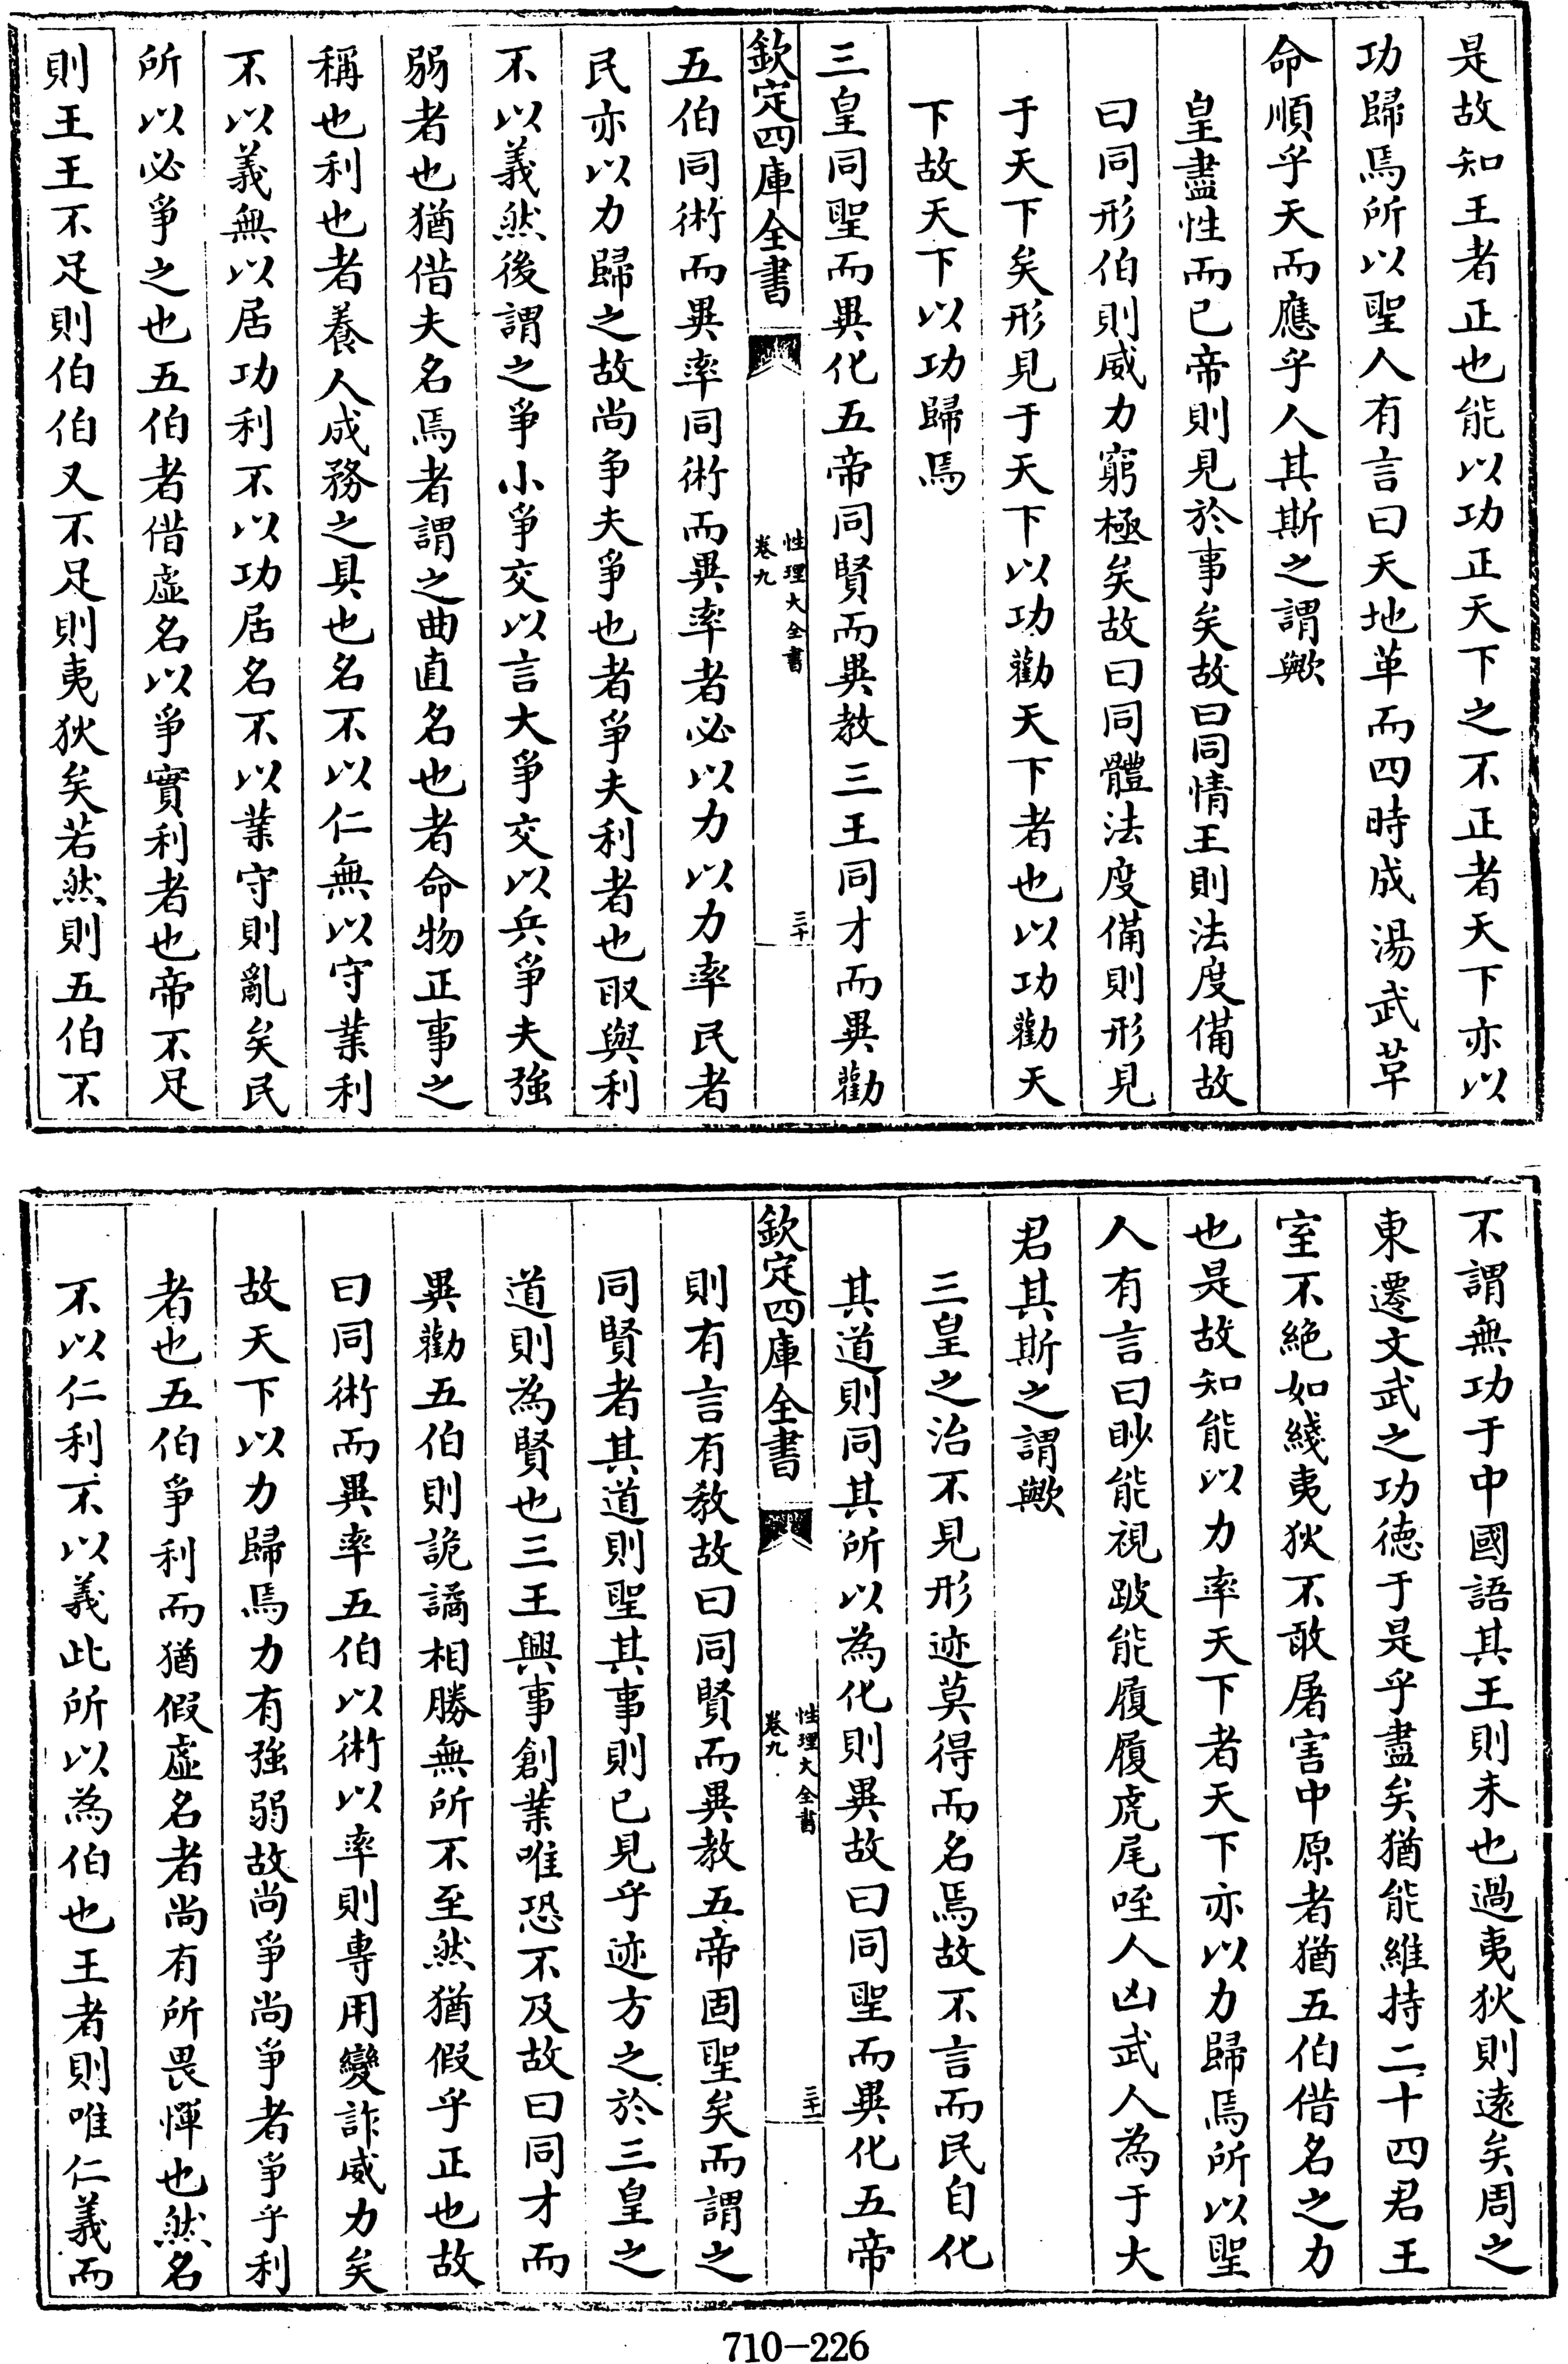 是故知王者正也能以功正天下之不正者天下亦以
功歸焉所以聖人有言曰天地革而四時成湯武革
命順乎天而應乎人其斯之謂歟
皇盡性而已帝則見於事矣故曰同情王則法度備故
曰同形伯則威力窮極矣故曰同體法度備則形見
于天下矣形見于天下以功勸天下者也以功勸天
下故天下以功歸焉
三皇同聖而異化五帝同賢而異教三王同才而異勸
欽定四庫全書
性理大全書
卷九
三十
五伯同術而異率同術而異率者必以力以力率民者
民亦以力歸之故尚争夫爭也者爭夫利者也取與利
不以義然後謂之爭小爭交以言大爭交以兵爭夫強
弱者也猶借夫名焉者謂之曲直名也者命物正事之
稱也利也者養人成務之具也名不以仁無以守業利
不以義無以居功利不以功居名不以業守則亂矣民
所以必爭之也五伯者借虛名以爭實利者也帝不足
則王王不足則伯伯又不足則夷狄矣若然則五伯不
不謂無功于中國語其王則未也過夷狄則遠矣周之
東遷文武之功徳于是乎盡矣猶能維持二十四君王
室不絶如綫夷狄不敢屠害中原者猶五伯借名之力
也是故知能以力率天下者天下亦以力歸焉所以聖
人有言曰眇能視跛能履履虎尾咥人凶武人為于大
君其斯之謂歟
三皇之治不見形迹莫得而名焉故不言而民自化
其道則同其所以為化則異故曰同聖而異化五帝
欽定四庫全書
性理大全書
卷九
三十一
則有言有教故曰同賢而異教五帝固聖矣而謂之
同賢者其道則聖其事則已見乎迹方之於三皇之
道則為賢也三王興事創業唯恐不及故曰同才而
異勸五伯則詭譎相勝無所不至然猶假乎正也故
曰同術而異率五伯以術以率則專用變詐威力矣
故天下以力歸焉力有強弱故尚爭尚爭者爭乎利
者也五伯爭利而猶假虛名者尚有所畏憚也然名
不以仁利不以義此所以為伯也王者則唯仁義而
710-226